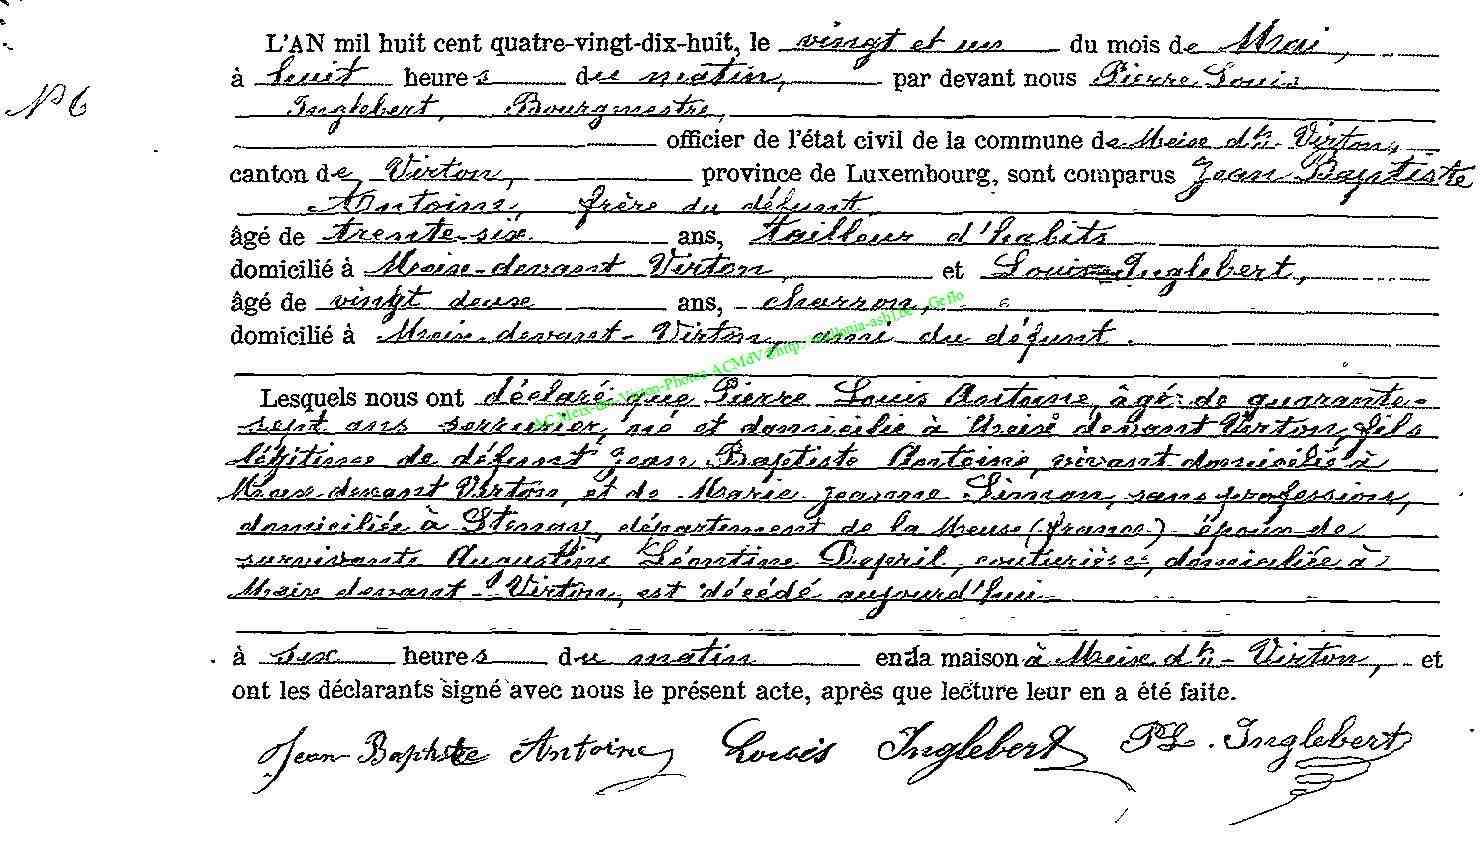 L'AN mil huit cent quatre-vingt-dix-huit, le vingt et un du mois de Mai,
à huit heures du matin, par devant nous Pierre Louis
N° 6
Inglebert, Bourgmestre,
officier de l'état civil de la commune de Meix dt Virton,
canton de Virton, province de Luxembourg, sont comparus Jean Baptiste
Antoine, frère du défunt
âgé de trente-six ans, tailleur d'habits
domicilié à Meix-devant Virton, et Louis Inglebert,
âgé de vingt deux ans, charron,
domicilié à Meix-devant-Virton, ami du défunt.
Lesquels nous ont déclaré que Pierre Louis Antoine, âgé de quarante-
sept ans serrurier, né et domicilié à Meix devant Virton, fils
légitime de défunt Jean Baptiste Antoine, vivant domicilié à
Meix-devant Virton, et de Marie Jeanne Simon, sans profession,
domiciliée à Stenay, département de la Meuse (France) époux de
survivante Augustine Léontine Depril, couturière, domiciliée à
Meix devant Virton, est décédé aujourd'hui
à six heures du matin en la maison à Meix dt-Virton, et
ont les déclarants signé avec nous le présent acte, après que lecture leur en a été faite.
Jean Baptiste Antoine Louis Inglebert PL. Inglebert